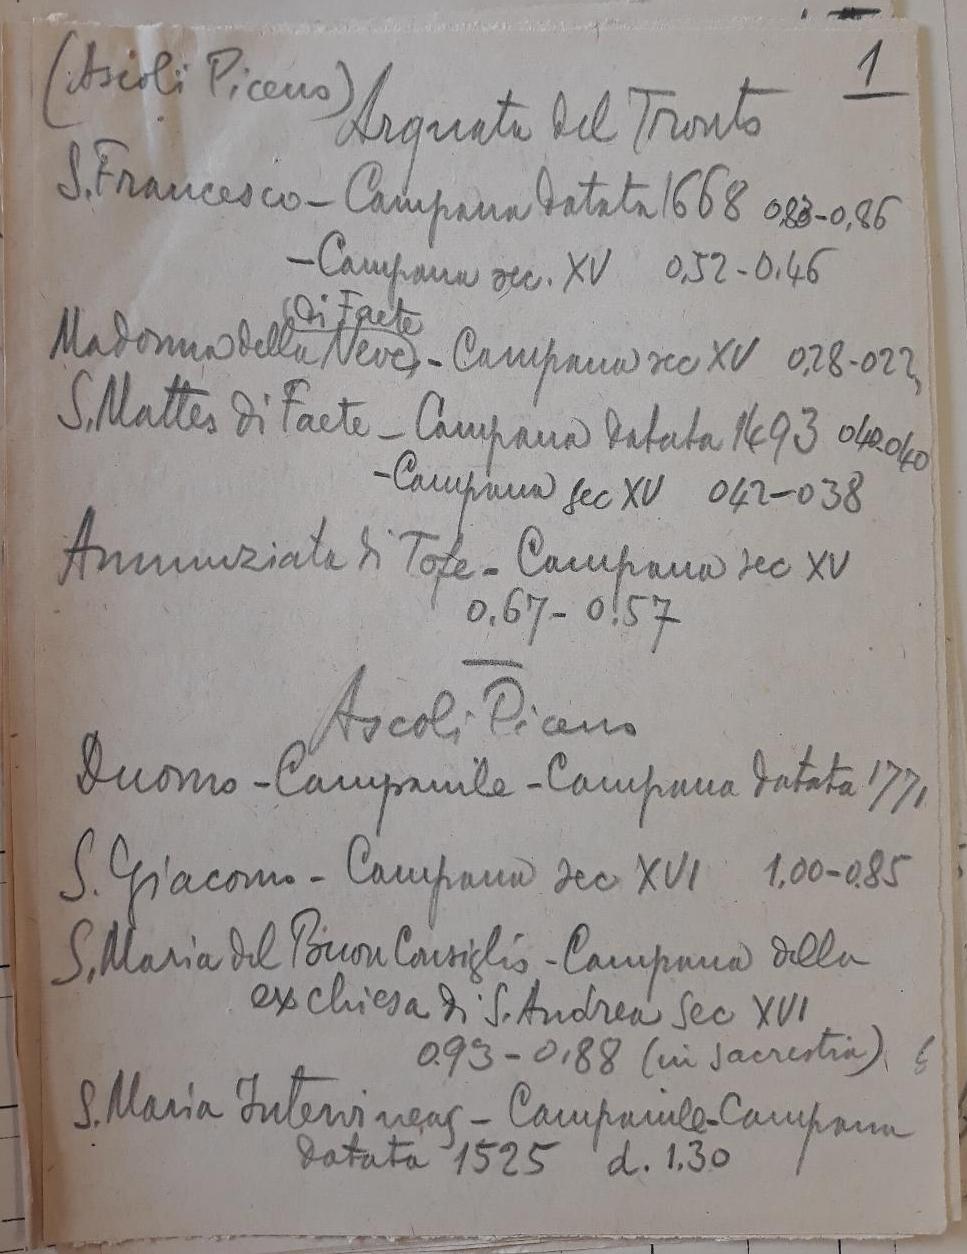 (Ascoli Piceno) 1
Arquata del Tronto
S. Francesco - Campana datata 1668 0,83-0,86
- Campana sec. XV 0,52-0.46
(di Faete
Madonna della Neve) - Campana sec XV 0,28-022
S. Matteo di Faete - Campana datata 1493 040-040
- Campana sec XV 042-038
Annunziata di Tofe - Campana sec XV
0.67-0.57
Ascoli Piceno
Duomo - Campanile - Campana datata 1771
S. Giacomo - Campana sec XVI 1.00-0.85
S. Maria del Buon Consiglio - Campana della
ex chiesa di S. Andrea sec XVI
0.93-0.88 (in sacrestia).
S. Maria Intervineas - Campanile - Campana
datata 1525 d. 1.30